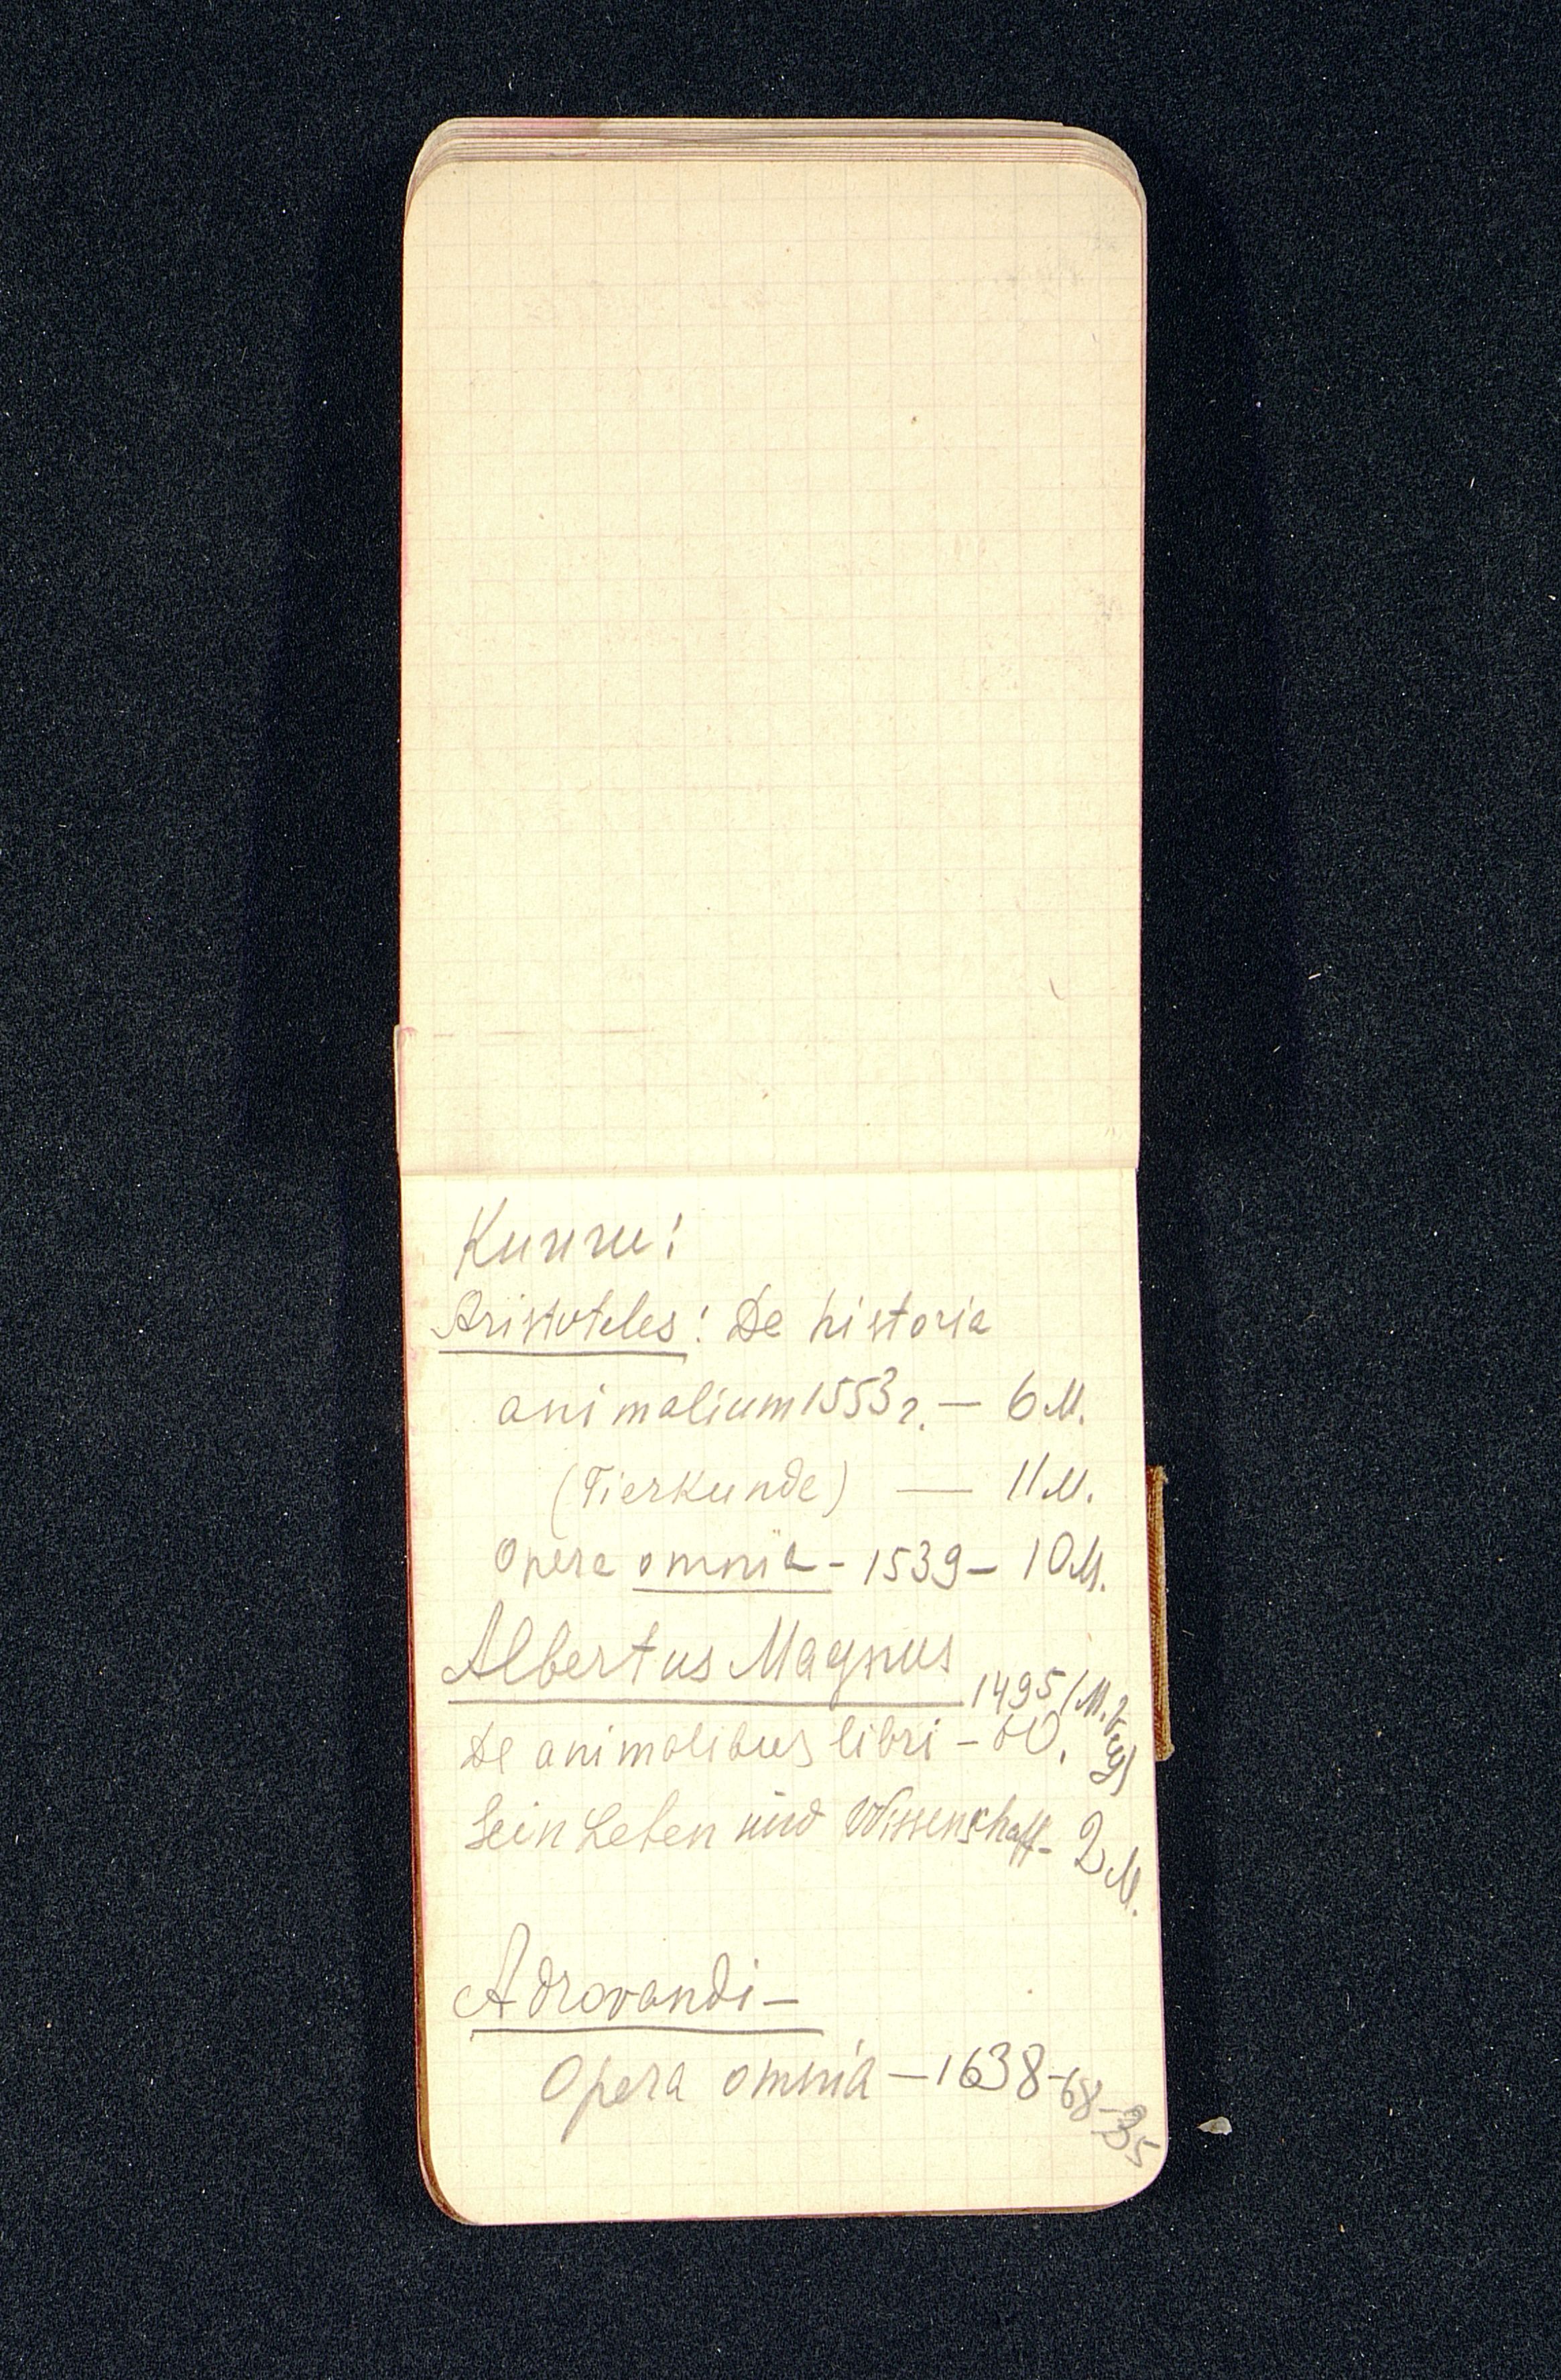 Книги:
Aristoteles: De historia
animalium 1553 г. — 6 М.
(Tierkunde) — 11 М.
Opera omnia - 1539 - 10 М.
Albertus Magnus
1495 (М.
De animalibus libri - 60.
Sein Leben und Wissenschaft - 2 М.
Adrovandi -
Opera omnia — 1638-68-35